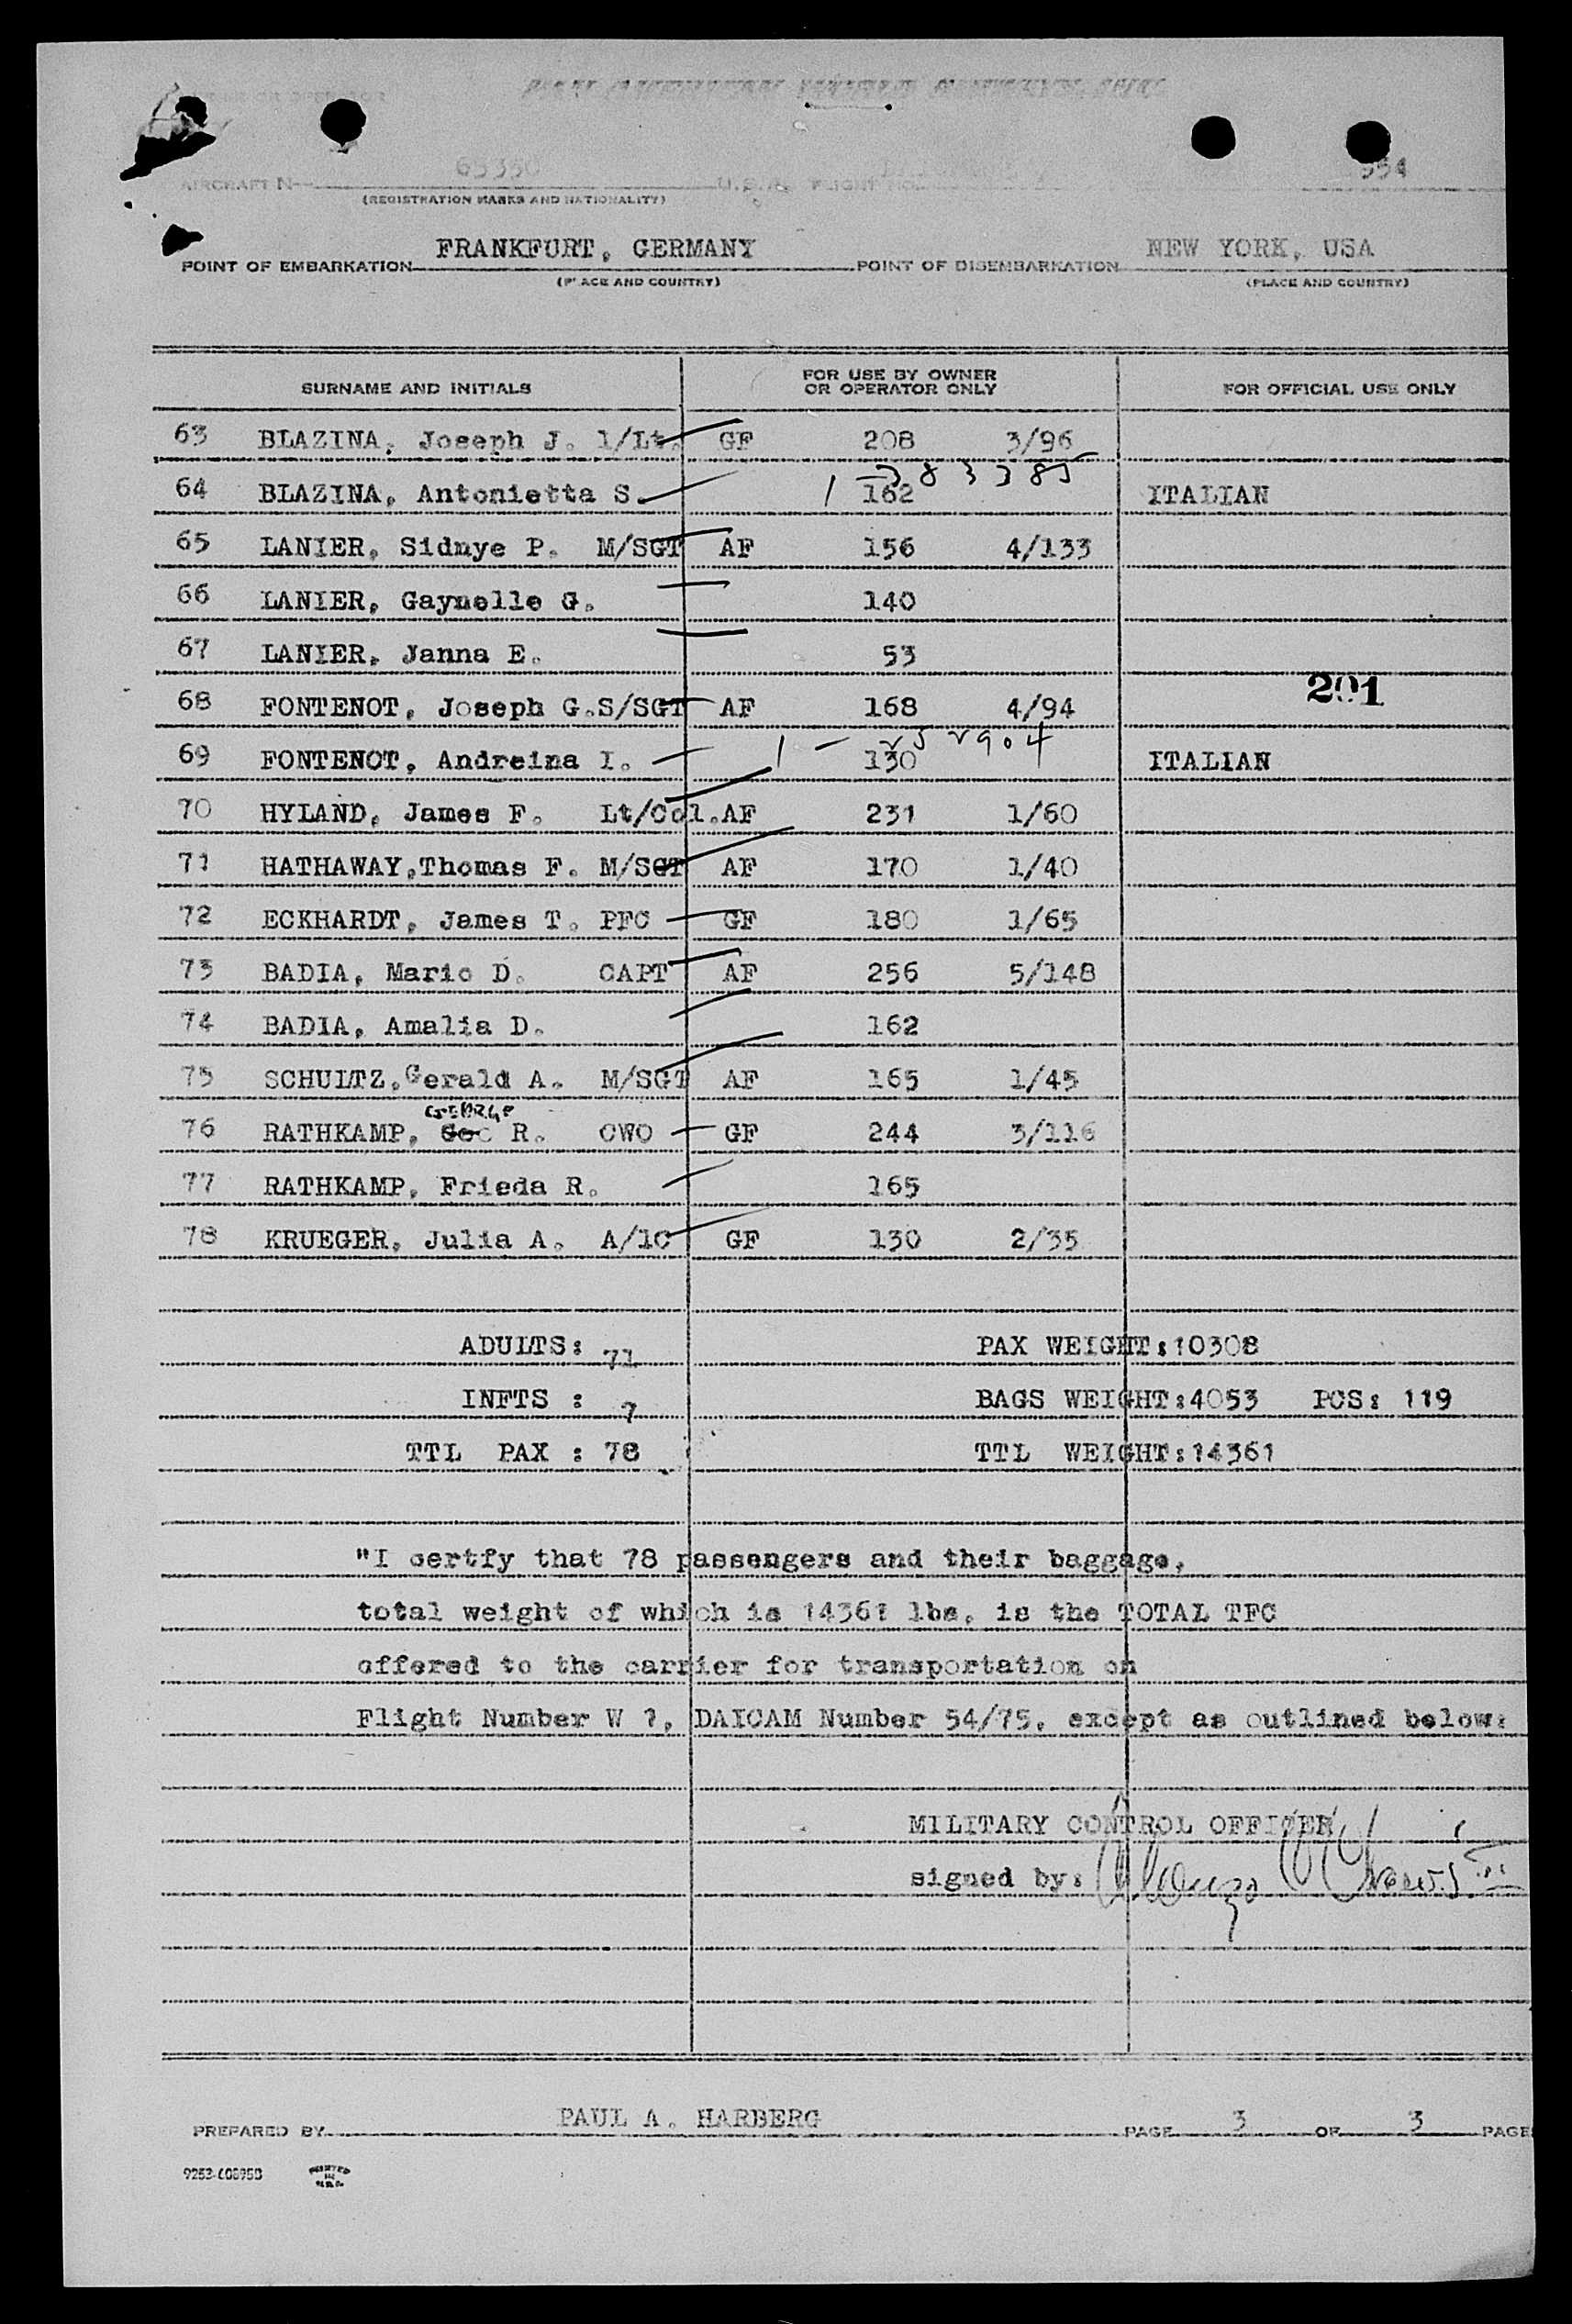 AIRCRAFT N— 65350 U.S.A. FLIGHT NO. 954
(REGISTRATION MARKS AND NATIONALITY)
POINT OF EMBARKATION FRANKFURT, GERMANY POINT OF DISEMBARKATION NEW YORK, USA
(PLACE AND COUNTRY) (PLACE AND COUNTRY)
SURNAME AND INITIALS FOR USE BY OWNER OR OPERATOR ONLY FOR OFFICIAL USE ONLY
63 BLAZINA, Joseph J. 1/Lt. GF 208 3/96
64 BLAZINA, Antonietta S. 162 ITALIAN
65 LANIER, Sidnye P. M/SGT AF 156 4/133
66 LANIER, Gaynelle G. 140
67 LANIER, Janna E. 53
201
68 FONTENOT, Joseph G.S/SGT AF 168 4/94
69 FONTENOT, Andreina I. 130 ITALIAN
70 HYLAND, James F. Lt/Col.AF 231 1/60
71 HATHAWAY,Thomas F. M/SGT AF 170 1/40
72 ECKHARDT, James T. PFC GF 180 1/65
73 BADIA, Mario D. CAPT AF 256 5/148
74 BADIA, Amalia D. 162
75 SCHULTZ,Gerald A. M/SGT AF 165 1/45
GEORGE
76 RATHKAMP, Geo R. CWO GF 244 3/116
77 RATHKAMP, Frieda R. 165
78 KRUEGER, Julia A. A/1C GF 130 2/35
ADULTS: 71 PAX WEIGHT:10308
INFTS : 7 BAGS WEIGHT:4053 PCS: 119
TTL PAX : 78 TTL WEIGHT:14361
"I certfy that 78 passengers and their baggage,
total weight of which is 14361 lbs, is the TOTAL TFC
offered to the carrier for transportation on
Flight Number W ?, DAICAM Number 54/75, except as outlined below:
MILITARY CONTROL OFFICER
signed by:
PREPARED BY PAUL A. HARBERG PAGE 3 OF 3 PAGE
9253-60895B PRINTED IN U.S.A.